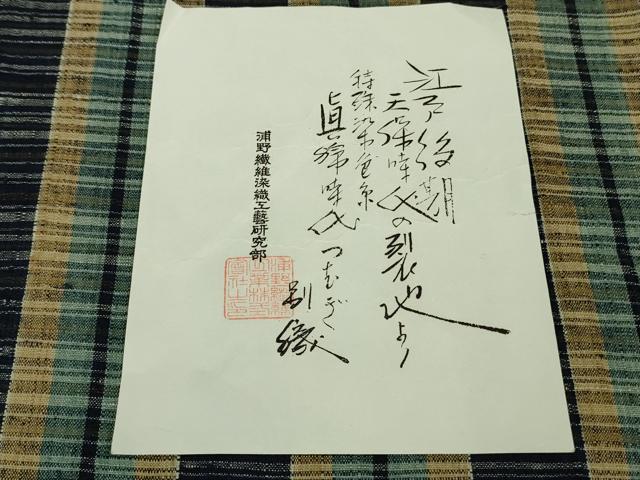 江戸後期
天保時代の裂地より
特殊染色糸
真綿時代つむぎ
別織
浦野繊維染織工藝研究部